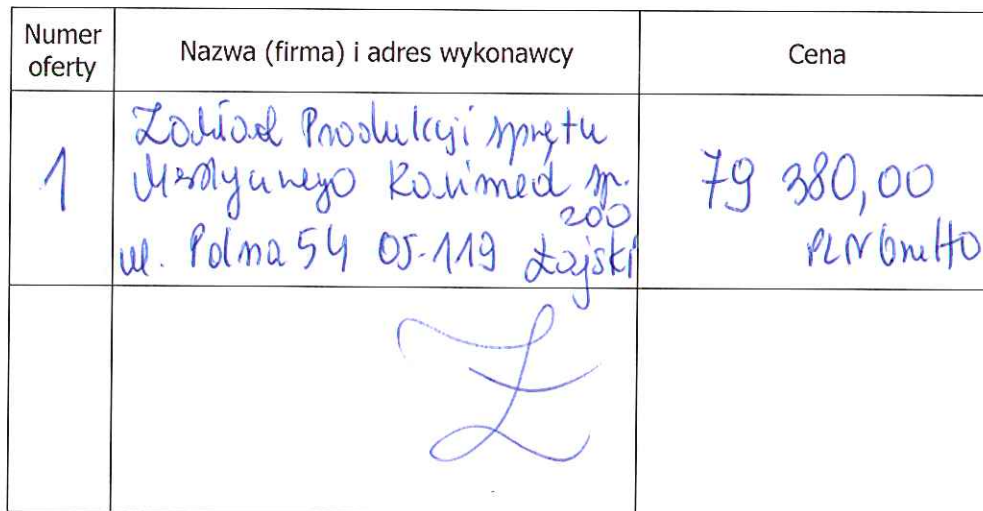 Numer oferty
Nazwa (firma) i adres wykonawcy
Cena
1
Zakład Produkcji sprzętu
Medycznego Kalimed sp.
zoo
ul. Polna 54 05-119 Łajski
79 380,00
PLN brutto